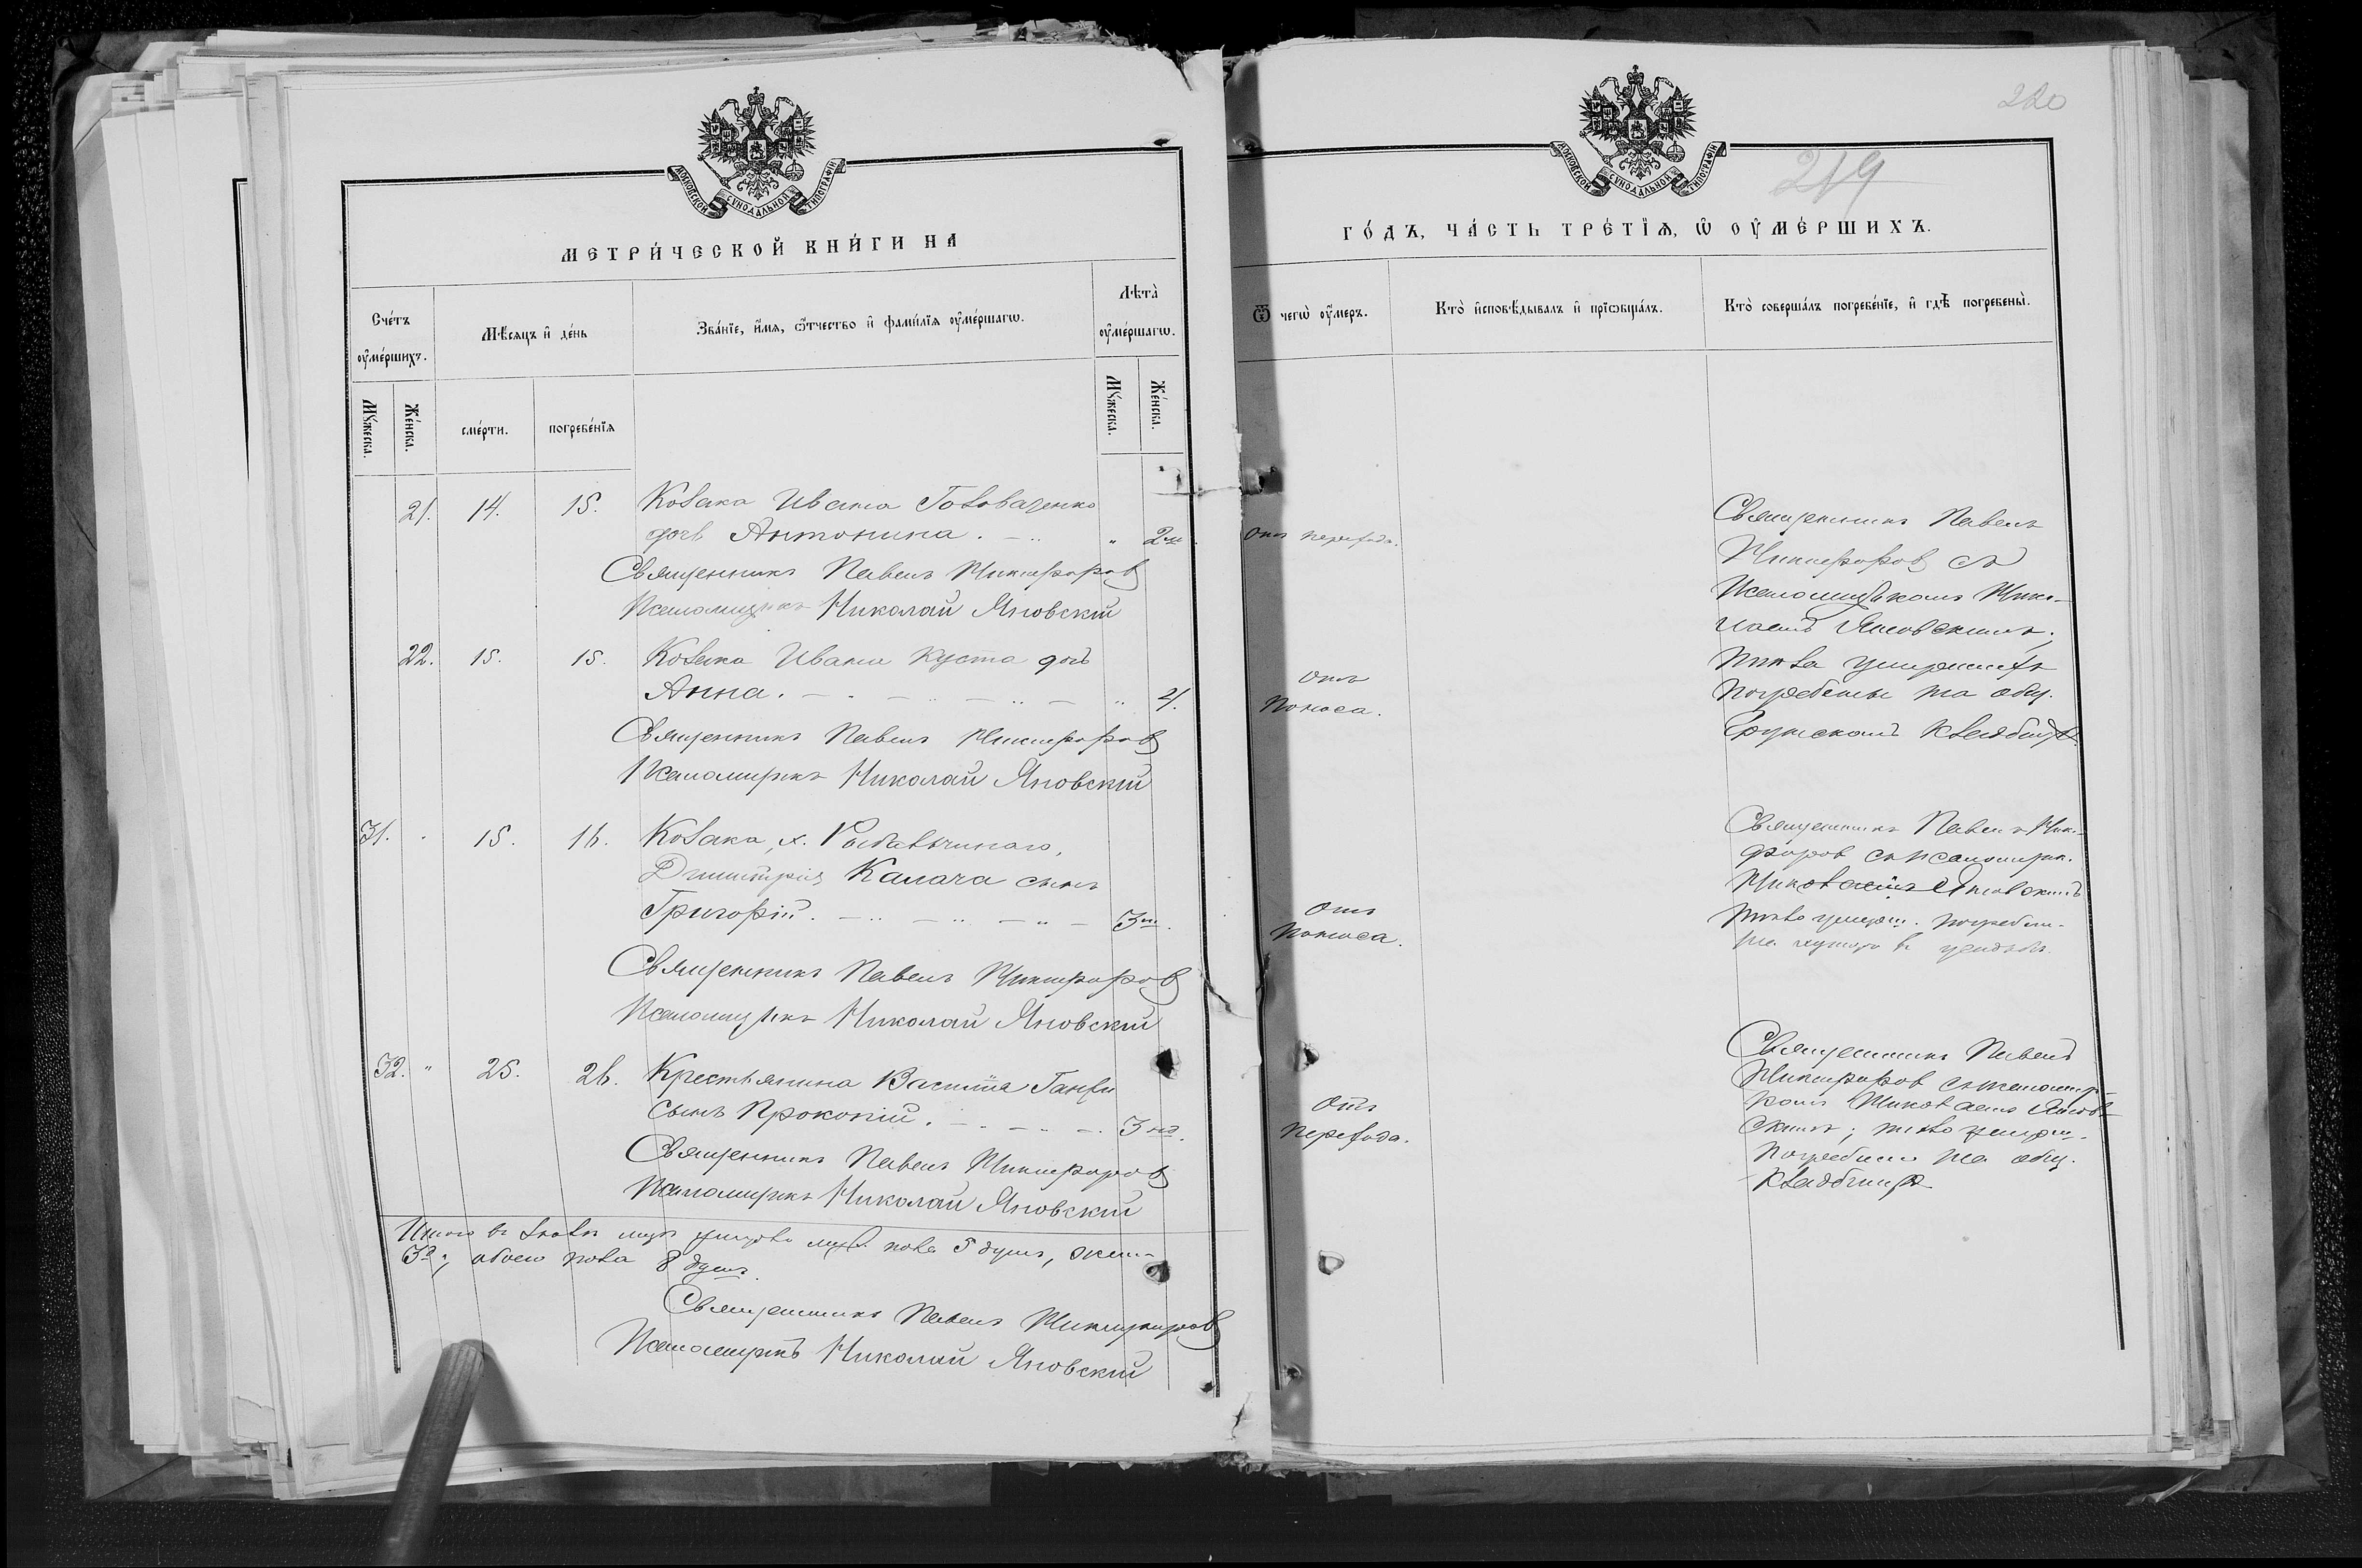 МОСКОВСКОЙ СУНОДАЛЬНОЙ ТИПОГРАФІИ
МЕТРИ́ЧЕСКОЙ КНИ́ГИ НА
Сче́тъ оуме́ршихъ.
Мѣ́сяцъ и де́нь
Зва́нїе, и́мя, ѻ́тчество и фами́лїя оуме́ршагѡ.
Лѣта̀ оуме́ршагѡ.
Мꙋжеска.
Же́нска.
сме́рти.
погребе́нїѧ
Мꙋжеска.
Же́нска.
21. 14. 15. Козака Ивана Головаченко
дочь Антонина. " 2 м.
Священникъ Павелъ Никифоровъ
Псаломщикъ Николай Яновскій
22. 15. 15. Козака Ивана Куста дочь
Анна. " 4.
Священникъ Павелъ Никифоровъ
Псаломщикъ Николай Яновскій
31. " 15. 16. Козака, х.
Димитрія Калача сынъ
Григорій. 3 м.
Священникъ Павелъ Никифоровъ
Псаломщикъ Николай Яновскій
32. " 25. 26. Крестьянина Василія
сынъ Прокопій. 3 нд.
Священникъ Павелъ Никифоровъ
Псаломщикъ Николай Яновскій
Итого въ пола 5 душъ, жен.
3; обоего пола 8 душъ.
Священникъ Павелъ Никифоровъ
Псаломщикъ Николай Яновскій
220
МОСКОВСКОЙ СУНОДАЛЬНОЙ ТИПОГРАФІИ
219
ГО́ДЪ, ЧА́СТЬ ТРЕ́ТЇѦ, Ѡ ОУМЕ́РШИХЪ.
Ѿ чегѡ̀ оу́меръ.
Кто̀ и́сповѣ́дывалъ и прїѡбща́лъ.
Кто̀ соверша́лъ погребе́нїе, и гдѣ̀ погребены̀.
Отъ перехода.
Священникъ Павелъ
Никифоровъ съ
Псаломщикомъ Нико-
лаемъ Яновскимъ;
тѣла умершихъ
погребены на общ.
Грунскомъ кладбищѣ.
Отъ
Поноса.
Священникъ Павелъ Ники-
форовъ съ псаломщик.
Николаемъ Яновскимъ
тѣло умерш. погребен.
на хуторѣ въ усадьбѣ.
Отъ
Поноса.
Священникъ Павелъ
Никифоровъ съ псаломщи-
комъ Николаемъ Янов-
скимъ; тѣло умерш.
погребено на общ.
кладбищѣ
Отъ
перехода.